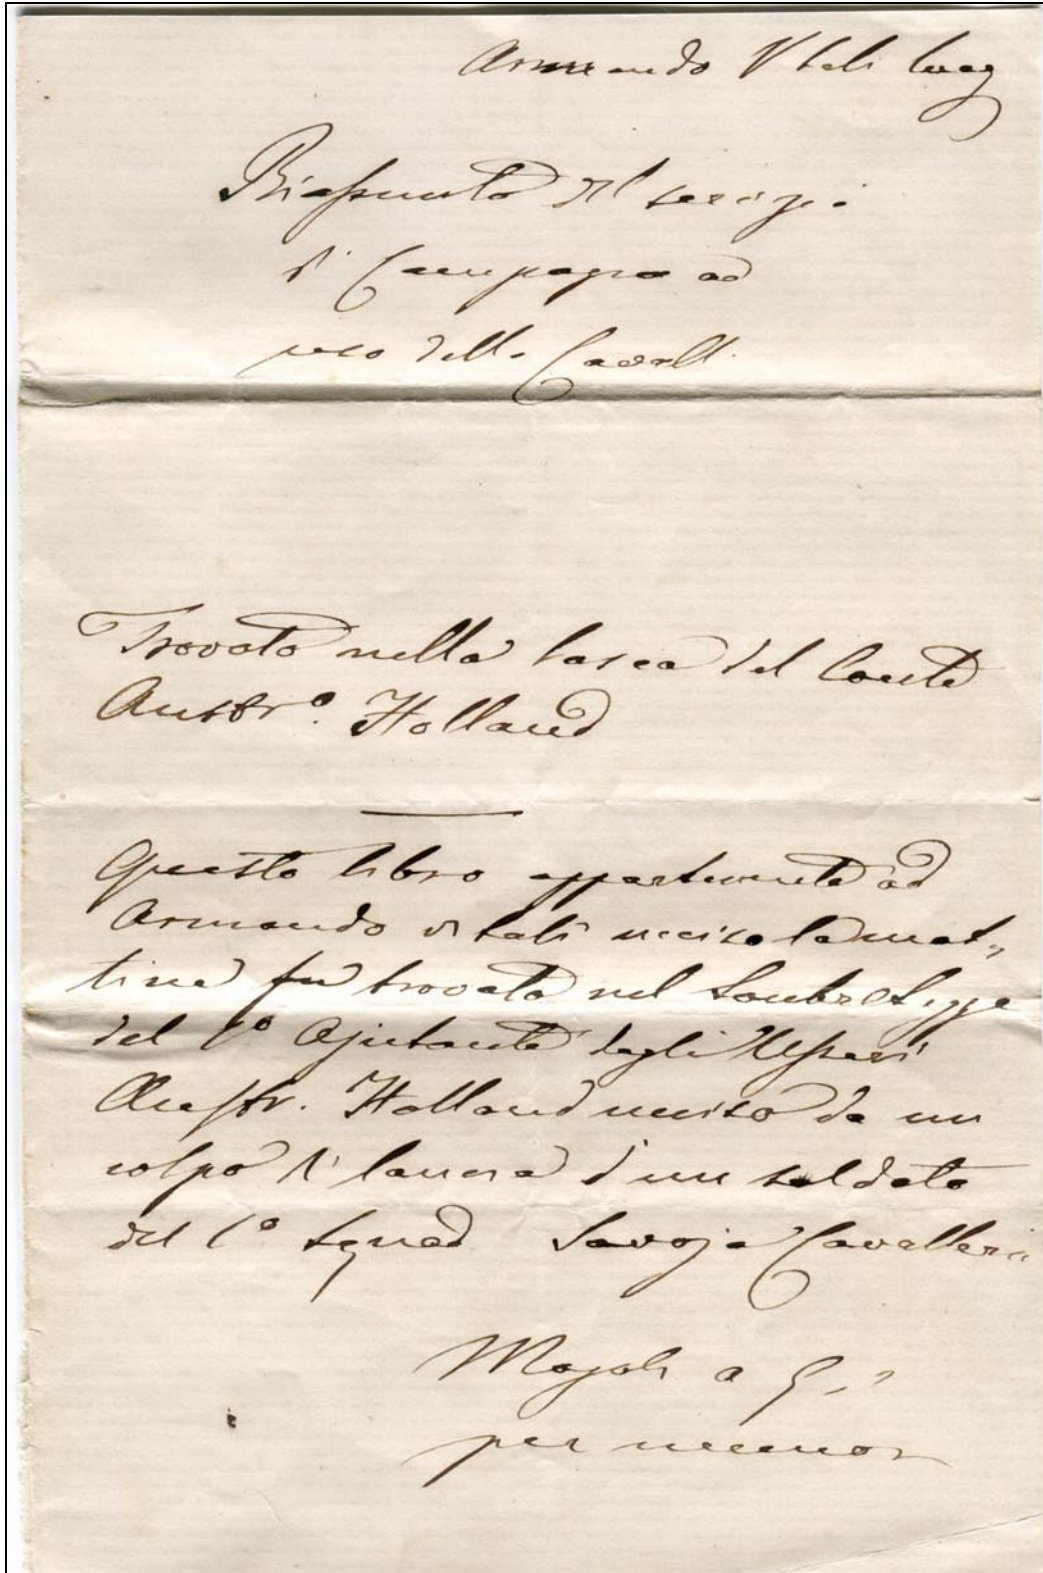 Armando Vitali luog
Riassunto del servizio
di Campagna ad
uso della Cavall.
Trovato nella tasca del Conte
Austr.º Holland
Questo libro appartenente ad
Armando Vitali ucciso la mat„
tina fu trovato nel
del 1º Ajutante degli Usseri
Austr. Holland ucciso da un
colpo di lancia d'un soldato
del 1º Squad Savoja Cavalleria
a
per memor